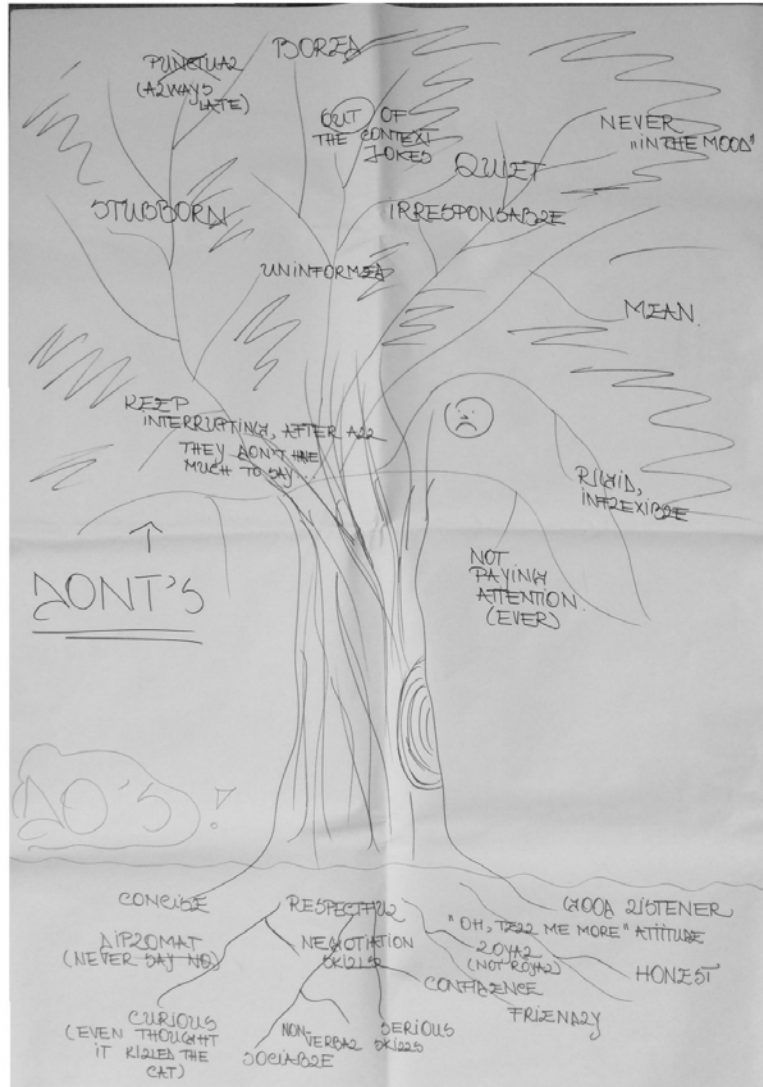 BORED
PUNCTUAL
(ALWAYS
LATE)
OUT OF
THE CONTEXT
JOKES
NEVER
"IN THE MOOD"
QUIET
STUBBORN
IRRESPONSABLE
UNINFORMED
MEAN.
KEEP
INTERRUPTING, AFTER ALL
THEY DON'T HAVE
MUCH TO SAY...
RIGID,
INFLEXIBLE
NOT
PAYING
ATTENTION
(EVER)
DONT'S
DO'S!
CONCISE
RESPECTFUL
GOOD LISTENER
"OH, TELL ME MORE" ATTITUDE
DIPLOMAT
(NEVER SAY NO)
NEGOTIATION
SKILLS
LOYAL
(NOT ROYAL)
HONEST
CONFIDENCE
FRIENDLY
CURIOUS
(EVEN THOUGHT
IT KILLED THE
CAT)
SOCIABLE
NON-
VERBAL
SERIOUS
SKILLS